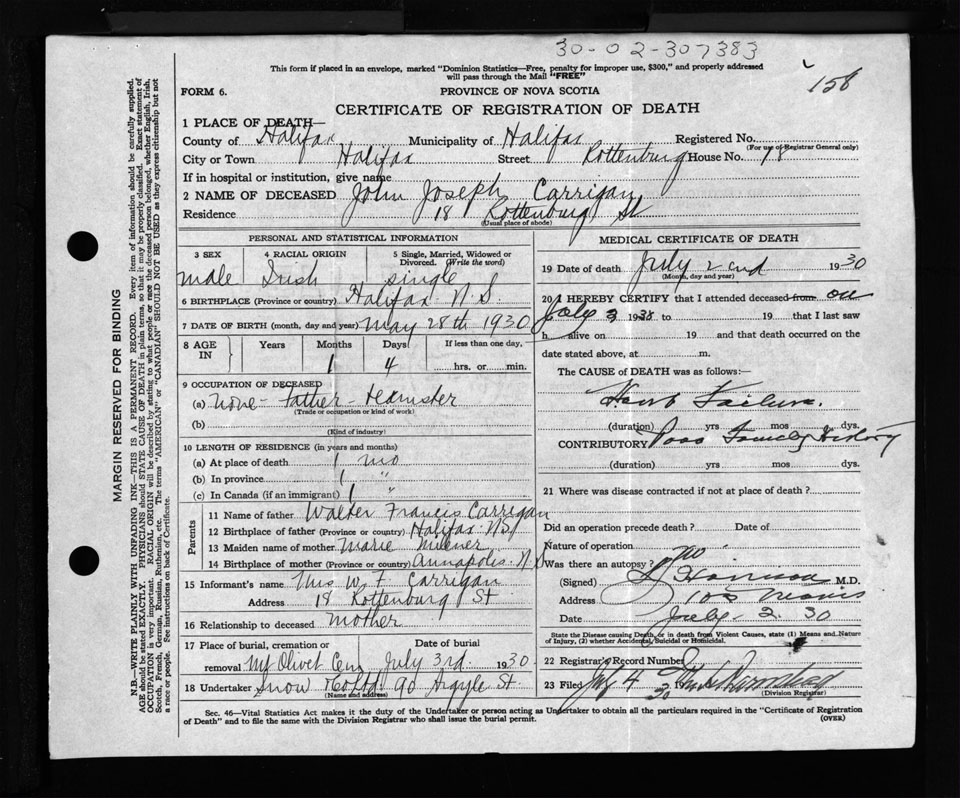 30-02-307383
158
This form if placed in an envelope, marked "Dominion Statistics—Free, penalty for improper use, $300," and properly addressed
will pass through the Mail "FREE"
FORM 6.
PROVINCE OF NOVA SCOTIA
CERTIFICATE OF REGISTRATION OF DEATH
1 PLACE OF DEATH—
County of Halifax Municipality of Halifax Registered No.
(For use of Registrar General only)
City or Town Halifax Street Rottenburg House No. 18
If in hospital or institution, give name
2 NAME OF DECEASED John Joseph Carrigan
Residence 18 Rottenburg St
(Usual place of abode)
PERSONAL AND STATISTICAL INFORMATION
3 SEX 4 RACIAL ORIGIN 5 Single, Married, Widowed or Divorced. (Write the word)
male Irish single
6 BIRTHPLACE (Province or country) Halifax N.S.
7 DATE OF BIRTH (month, day and year) May 28th 1930
8 AGE IN Years Months Days If less than one day,
1 4 hrs. or min.
9 OCCUPATION OF DECEASED
(a) None - Father - Teamster
(Trade or occupation or kind of work)
(b)
(Kind of industry)
10 LENGTH OF RESIDENCE (in years and months)
(a) At place of death 1 mo
(b) In province 1 "
(c) In Canada (if an immigrant) 1 "
Parents
11 Name of father Walter Francis Carrigan
12 Birthplace of father (Province or country) Halifax N.S.
13 Maiden name of mother Marie Milner
14 Birthplace of mother (Province or country) Annapolis N.S
15 Informant's name Mrs W. F. Carrigan
Address 18 Rottenburg St
16 Relationship to deceased mother
17 Place of burial, cremation or removal Mt Olivet Cem Date of burial July 3rd 1930
18 Undertaker Snow Co Ltd 90 Argyle St.
(Name and address)
MEDICAL CERTIFICATE OF DEATH
19 Date of death July 2nd 1930
(Month, day and year)
20 I HEREBY CERTIFY that I attended deceased from on
July 19 to 19 that I last saw
h alive on 19 and that death occurred on the
date stated above, at m.
The CAUSE of DEATH was as follows:—
Heart Failure.
(duration) yrs mos dys.
CONTRIBUTORY Poor Family History
(duration) yrs mos dys.
21 Where was disease contracted if not at place of death?
Did an operation precede death? Date of
Nature of operation
Was there an autopsy? no
(Signed) M.D.
Address 105
Date July 2 30
State the Disease causing Death, or in death from Violent Causes, state (1) Means and Nature
of Injury, (2) whether Accidental, Suicidal or Homicidal.
22 Registrar's Record Number
23 Filed July 4 19
(Division Registrar)
Sec. 46—Vital Statistics Act makes it the duty of the Undertaker or person acting as Undertaker to obtain all the particulars required in the "Certificate of Registration
of Death" and to file the same with the Division Registrar who shall issue the burial permit.
(OVER)
MARGIN RESERVED FOR BINDING
N.B.—WRITE PLAINLY WITH UNFADING INK—THIS IS A PERMANENT RECORD. Every item of information should be carefully supplied.
AGE should be stated EXACTLY. PHYSICIANS should STATE CAUSE OF DEATH in plain terms, so that it may be properly classified. Exact statement of
OCCUPATION is very important. RACIAL ORIGIN will be described by stating to what people or race the deceased person belonged, whether English, Irish,
Scotch, French, German, Russian, Ruthenian, etc. The terms "AMERICAN" or "CANADIAN" SHOULD NOT BE USED as they express citizenship but not
a race or people. See instructions on back of Certificate.